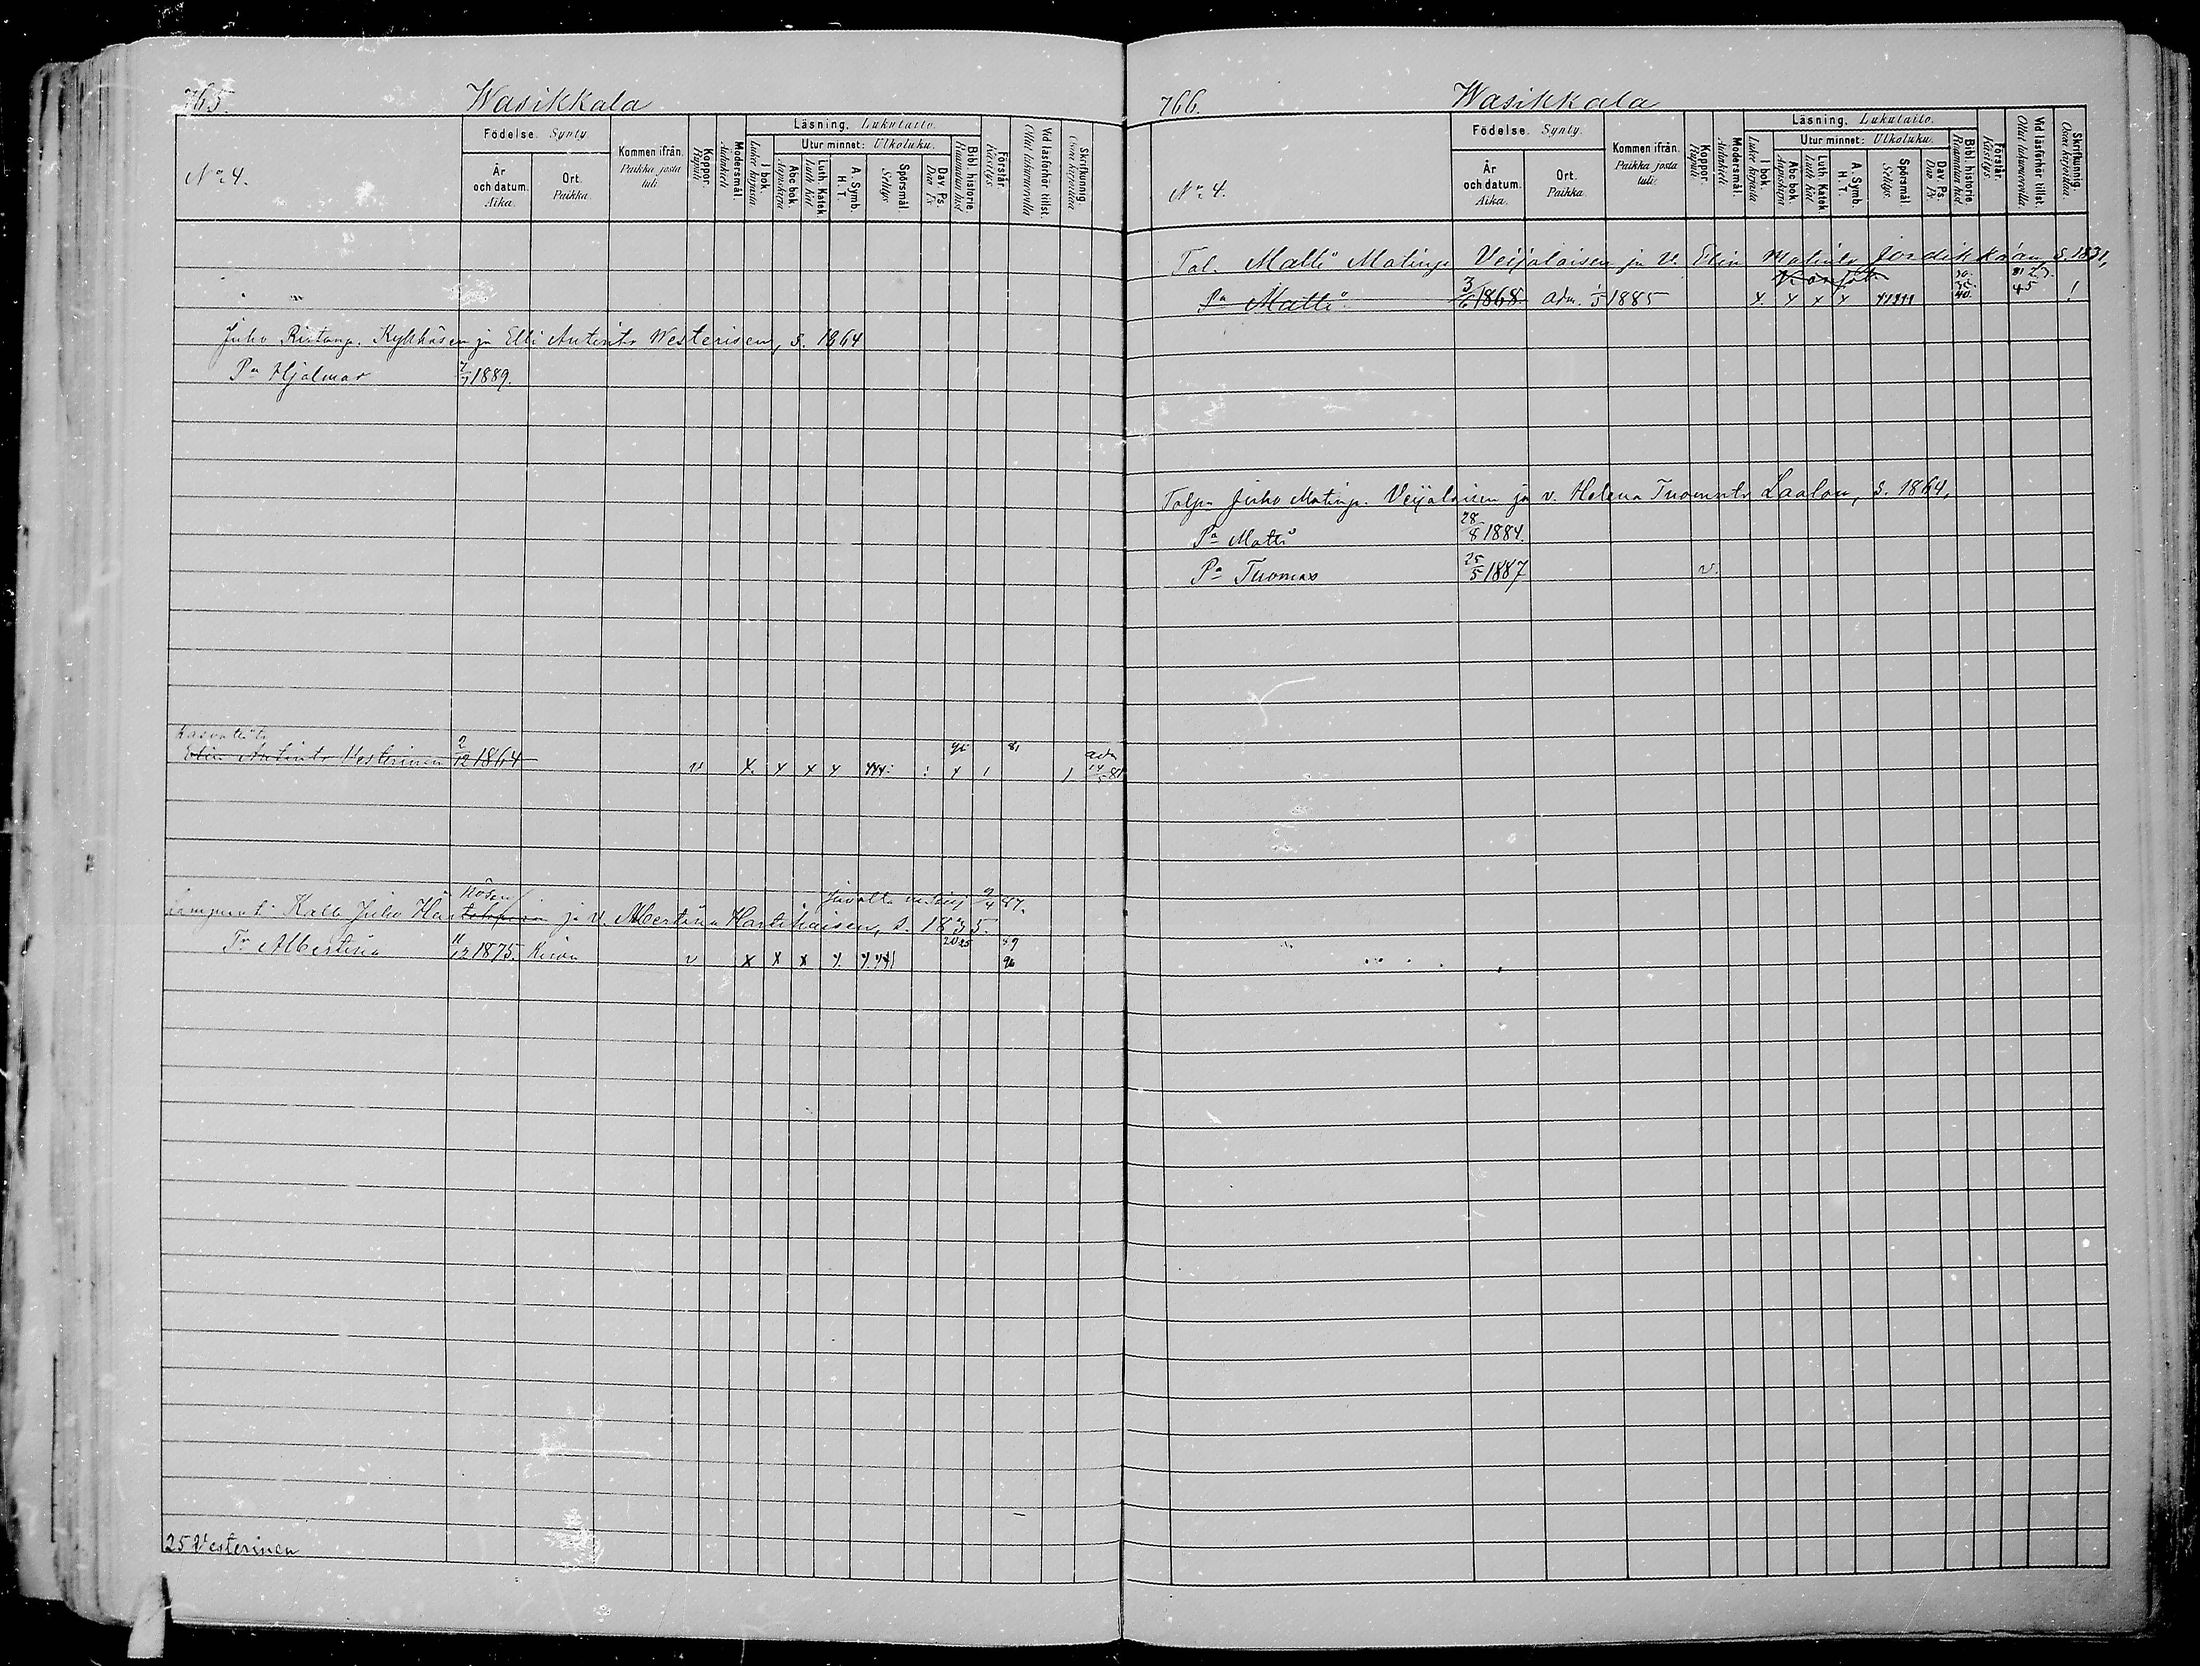 765.
Wasikkala
No 4.
Födelse. Synty.
År och datum. Aika.
Ort. Paikka.
Kommen ifrån. Paikka josta tuli.
Koppor. Rupuli
Modersmål. Äidinkieli
Läsning. Lukutaito.
I bok. Lukee kirjasta
Utur minnet: Ulkoluku.
Abc bok. Aapiskirja
Luth. Katek. Luuth. kat.
A. Symb. H. T.
Spörsmål. Selitys
Dav. Ps. Dav. Ps.
Bibl. historie. Raamatun hist.
Förstår. Käsitys.
Vid läsförhör tillst. Ollut lukuvuorolla
Skrifkunnig. Osaa kirjoittaa
Juho Kykkäsen ja Elli Antintr Westerisen, s. 1864
Pa Hjalmar 7/1 1889.
Elin Antintr Vesterinen 2/12 1864 v x. x x x 81 adm
Kalle Juho ja v. Albertina Hartikaisen, s. 1835. 9/4 87.
Tr Albertina 11/12 1875. v x x x x. 89
90
25 Vesterinen
766.
Wasikkala
No 4.
Födelse. Synty.
År och datum. Aika.
Ort. Paikka.
Kommen ifrån. Paikka josta tuli.
Koppor. Rupuli
Modersmål. Äidinkieli
Läsning. Lukutaito.
I bok. Lukee kirjasta
Utur minnet: Ulkoluku.
Abc bok. Aapiskirja
Luth. Katek. Luuth. kat.
A. Symb. H. T.
Spörsmål. Selitys.
Dav. Ps. Dav. Ps.
Bibl. historie. Raamatun hist.
Förstår. Käsitys.
Vid läsförhör tillst. Ollut lukuvuorolla.
Skrifkunnig. Osaa kirjoittaa.
Tal. Matti Matinp. Veijalaisen ja v. Elin Matintr s. 1831,
Pa Matti 3/6 1868 adm. 1/5 1885 x. x x x 45 !
Talp. Juho Matinp. Veijalaisen ja v. Helena Tuomntr Laalon, s. 1864,
Pa Matti 28/8 1884.
Pa Tuomas 25/5 1887 v.